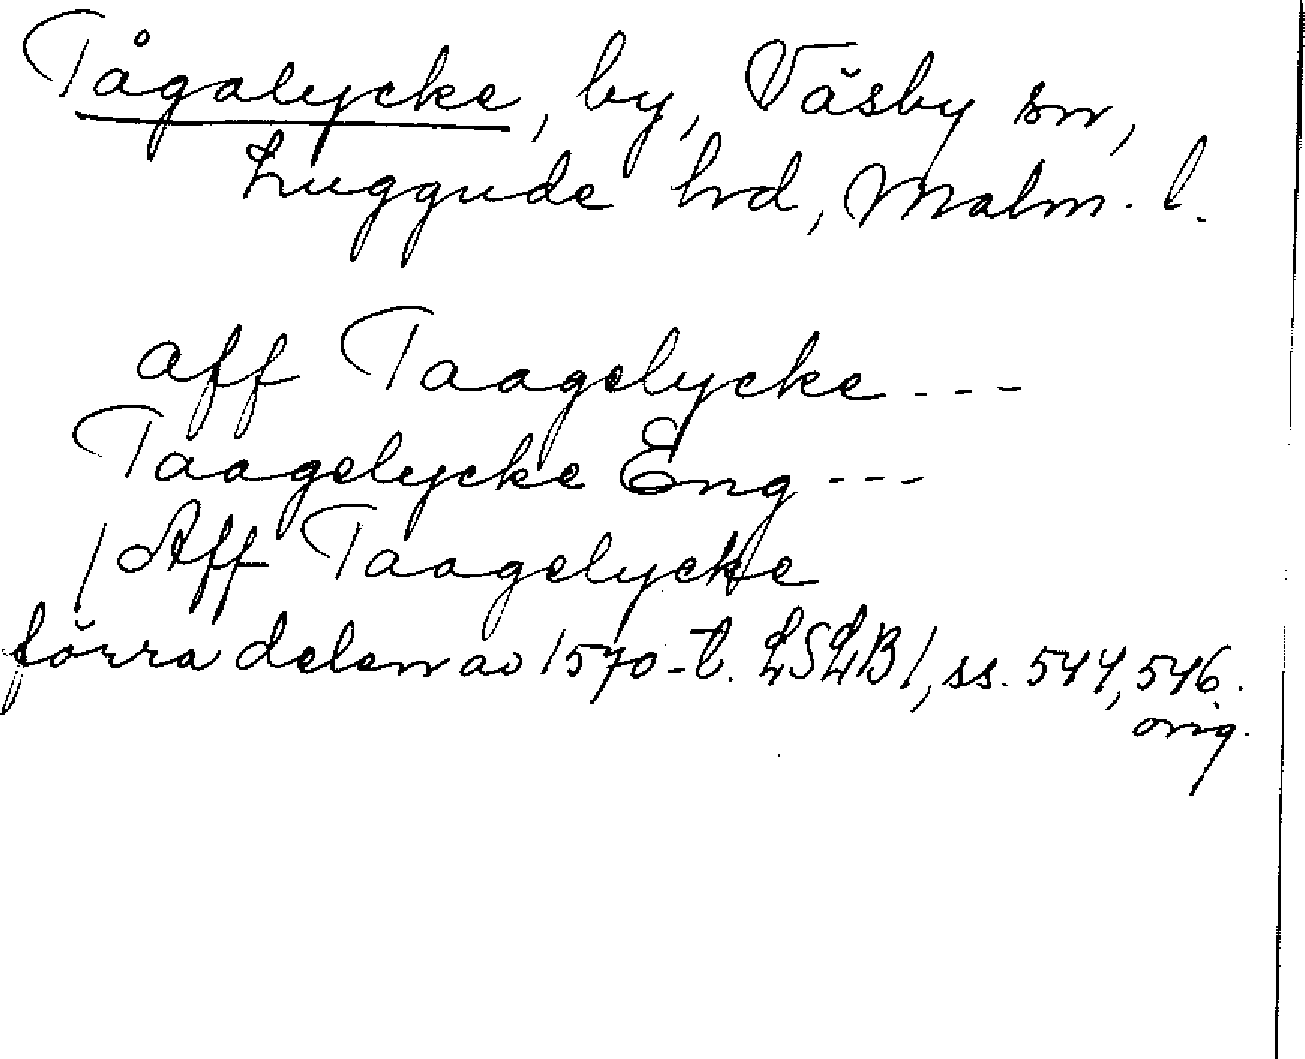 Tågalycke, by, Väsby sn,
Luggude hd, Malm. l.
aff Taagelycke ---
Taagelycke Eng ---
/ Aff Taagelycke
förra delen av 1570-t. LSLB 1, ss. 544, 546.
orig.